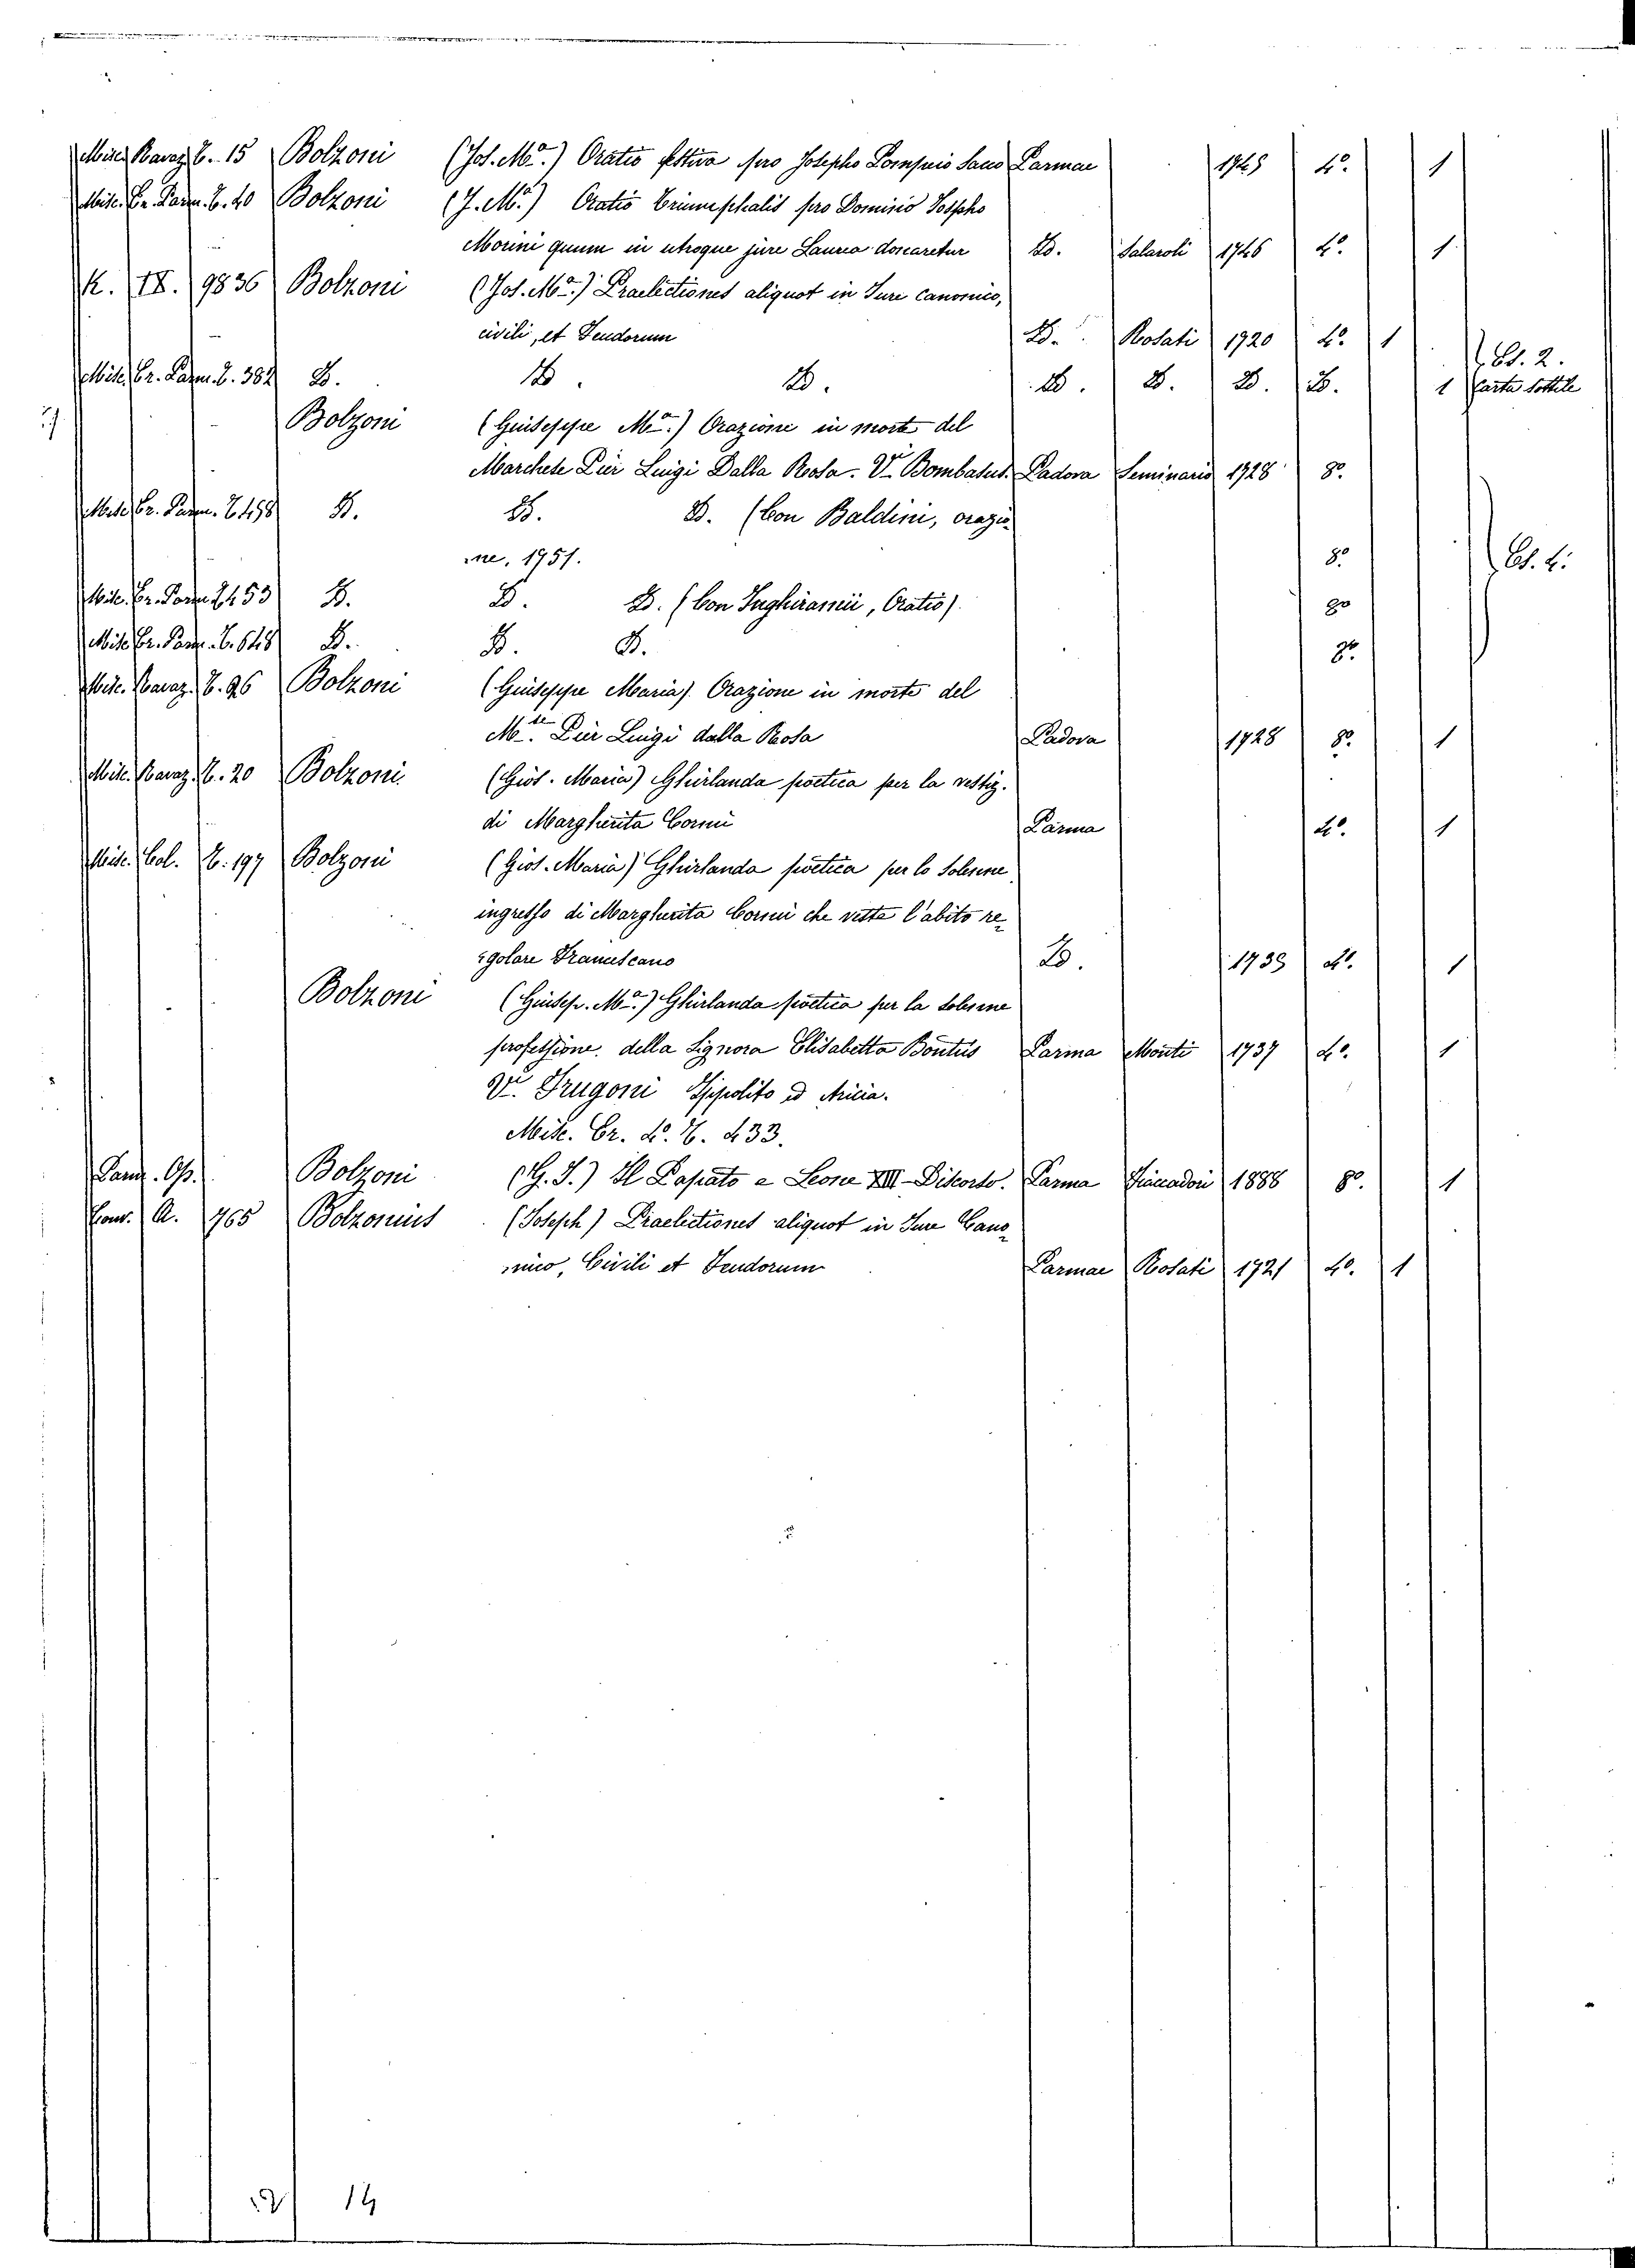 Misc. Ravaz. C. 15 Bolzoni (Jos. Mª.) Oratio festiva pro Josepho Pompeio Sacco Parmae 1745 4º. 1
Misc. Er. Parm. C. 40 Bolzoni (J. Mª.) Oratio Triumphalis pro Dominio Josepho
Morini quum in utroque jure Laurea donaretur D. Salaroli 1746 4º. 1
K. IX. 9836 Bolzoni (Jos. Mª.) Praelectiones aliquot in Jure canonico,
civili, et Feudorum D. Rosati 1720 4º. 1
Misc. Er. Parm. C. 382 D. D. D. D. D. D. D. 1 Es. 2. Carta sottile
Bolzoni (Giuseppe Mª.) Orazione in morte del
Marchese Pier Luigi Dalla Rosa. V. Bombasus. Padova Seminario 1728 8º.
Misc. Er. Parm. C. 458 D. D. D. (Con Baldini, orazio-
ne, 1751. 8º Es. 4.
Misc. Er. Parm. C. 453 D. D. D. (Con Inghirami, Oratio) 8º
Misc. Er. Parm. C. 648 D. D. D. 8º.
Misc. Ravaz. C. 26 Bolzoni (Giuseppe Maria). Orazione in morte del
Mse. Pier Luigi dalla Rosa Padova 1728 8º. 1
Misc. Ravaz. C. 20 Bolzoni (Gios. Maria) Ghirlanda poetica per la vestiz.
di Margherita Corini Parma 4º. 1
Misc. Col. C. 197 Bolzoni (Gios. Maria) Ghirlanda poetica per lo solenne
ingresso di Margherita Corini che veste l'abito re-
golare Francescano D. 1739 4º. 1
Bolzoni (Giusep. Mª.) Ghirlanda poetica per la solenne
professione della Signora Elisabetta Bontis Parma Monti 1737 4º. 1
V. Frugoni Ippolito ed Aricia.
Misc. Er. 4º. C. 433.
Parm. Op. Bolzoni (G. J.) Il Papato e Leone XIII - Discorso. Parma Fiaccadori 1888 8º. 1
Conv. A. 765 Bolzonius (Joseph) Praelectiones aliquot in Jure Cano-
nico, Civili et Feudorum Parmae Rosati 1721 4º. 1
14